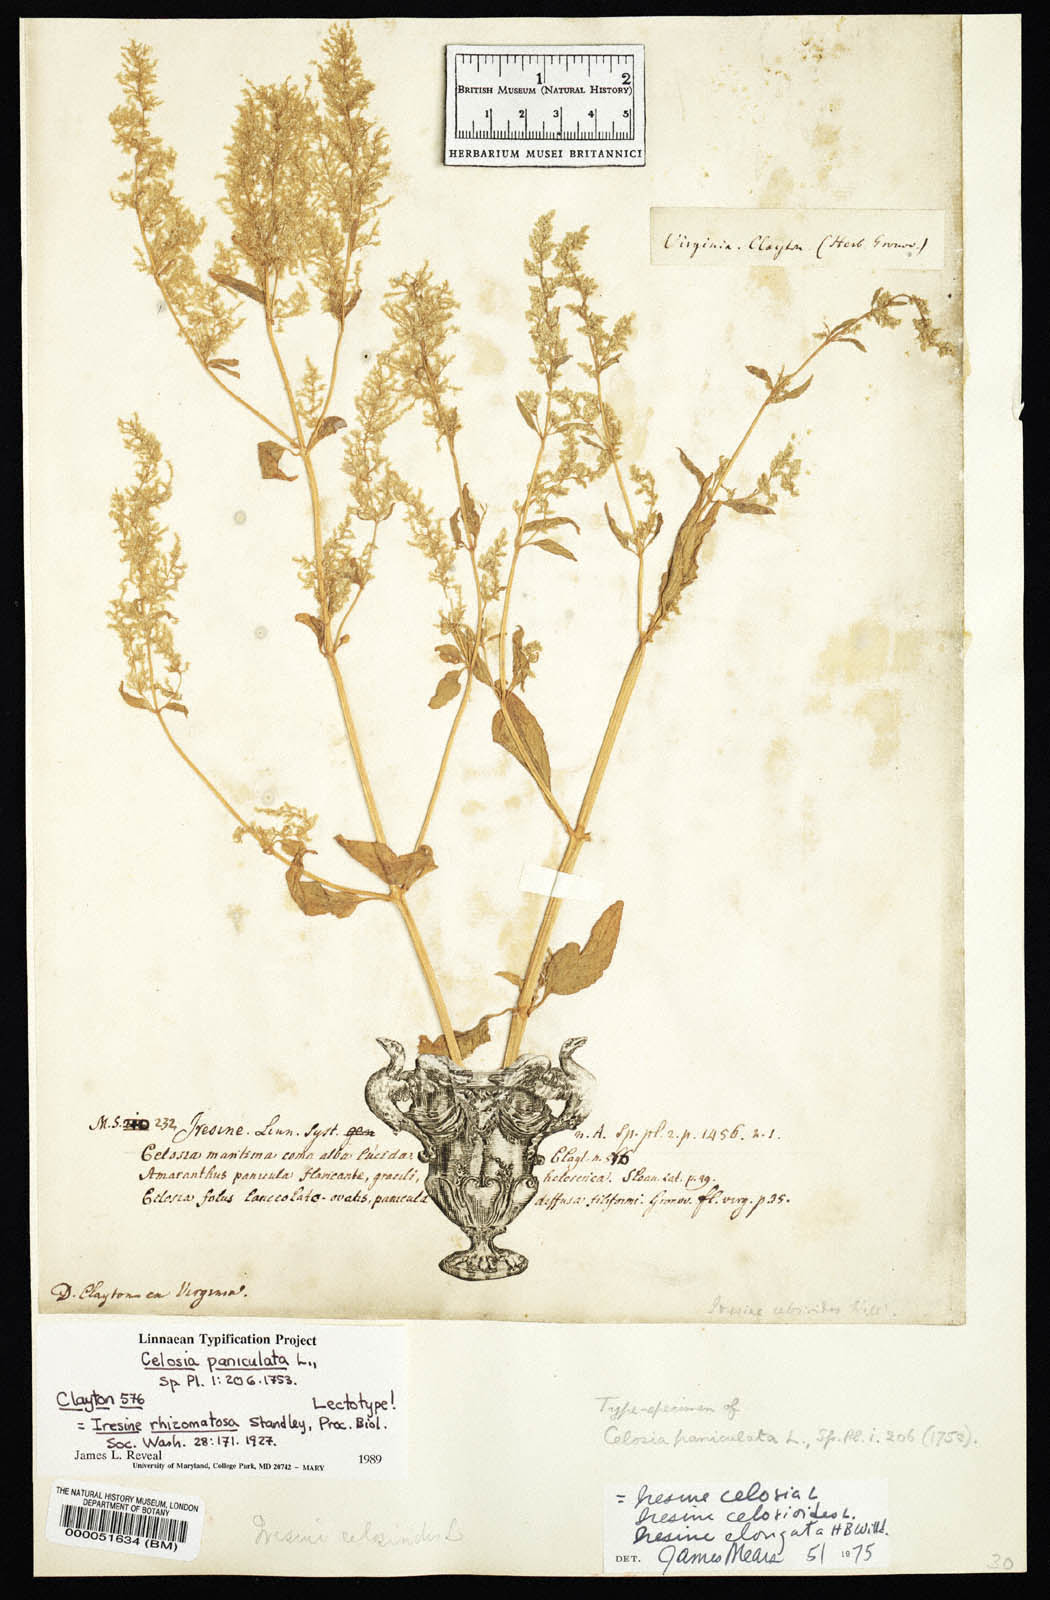 1 2
BRITISH MUSEUM (NATURAL HISTORY)
1 2 3 4 5
HERBARIUM MUSEI BRITANNICI
Virginia. Clayton. (Herb. Gronov.)
M.S. 232. Iresine. Linn. Syst. n. A. Sp. pl. 2. p. 1456. n. 1.
Celosia maritima coma alba lucida: Clayt. n. 576
Amaranthus panicula flavicante, gracili, holoserica. Sloan. cat. p. 49.
Celosia folus lanceolato-ovatis, panicula diffusa filiformi. Gronov. fl. virg. p. 35.
D. Clayton ex Virginia.
Iresine celosioides Lin.
Linnaean Typification Project
Celosia paniculata L.,
Sp. Pl. 1: 206. 1753.
Clayton 576 Lectotype!
= Iresine rhizomatosa Standley, Proc. Biol.
Soc. Wash. 28: 171. 1927.
James L. Reveal 1989
University of Maryland, College Park, MD 20742 – MARY
Type-specimen of
Celosia paniculata L., Sp. Pl. i. 206 (1753).
THE NATURAL HISTORY MUSEUM, LONDON
DEPARTMENT OF BOTANY
000051634 (BM)
Iresine celosioides L
= Iresine celosia L
Iresine celosioides L.
Iresine elongata HBWilld.
DET. James Mears 51 1975
30